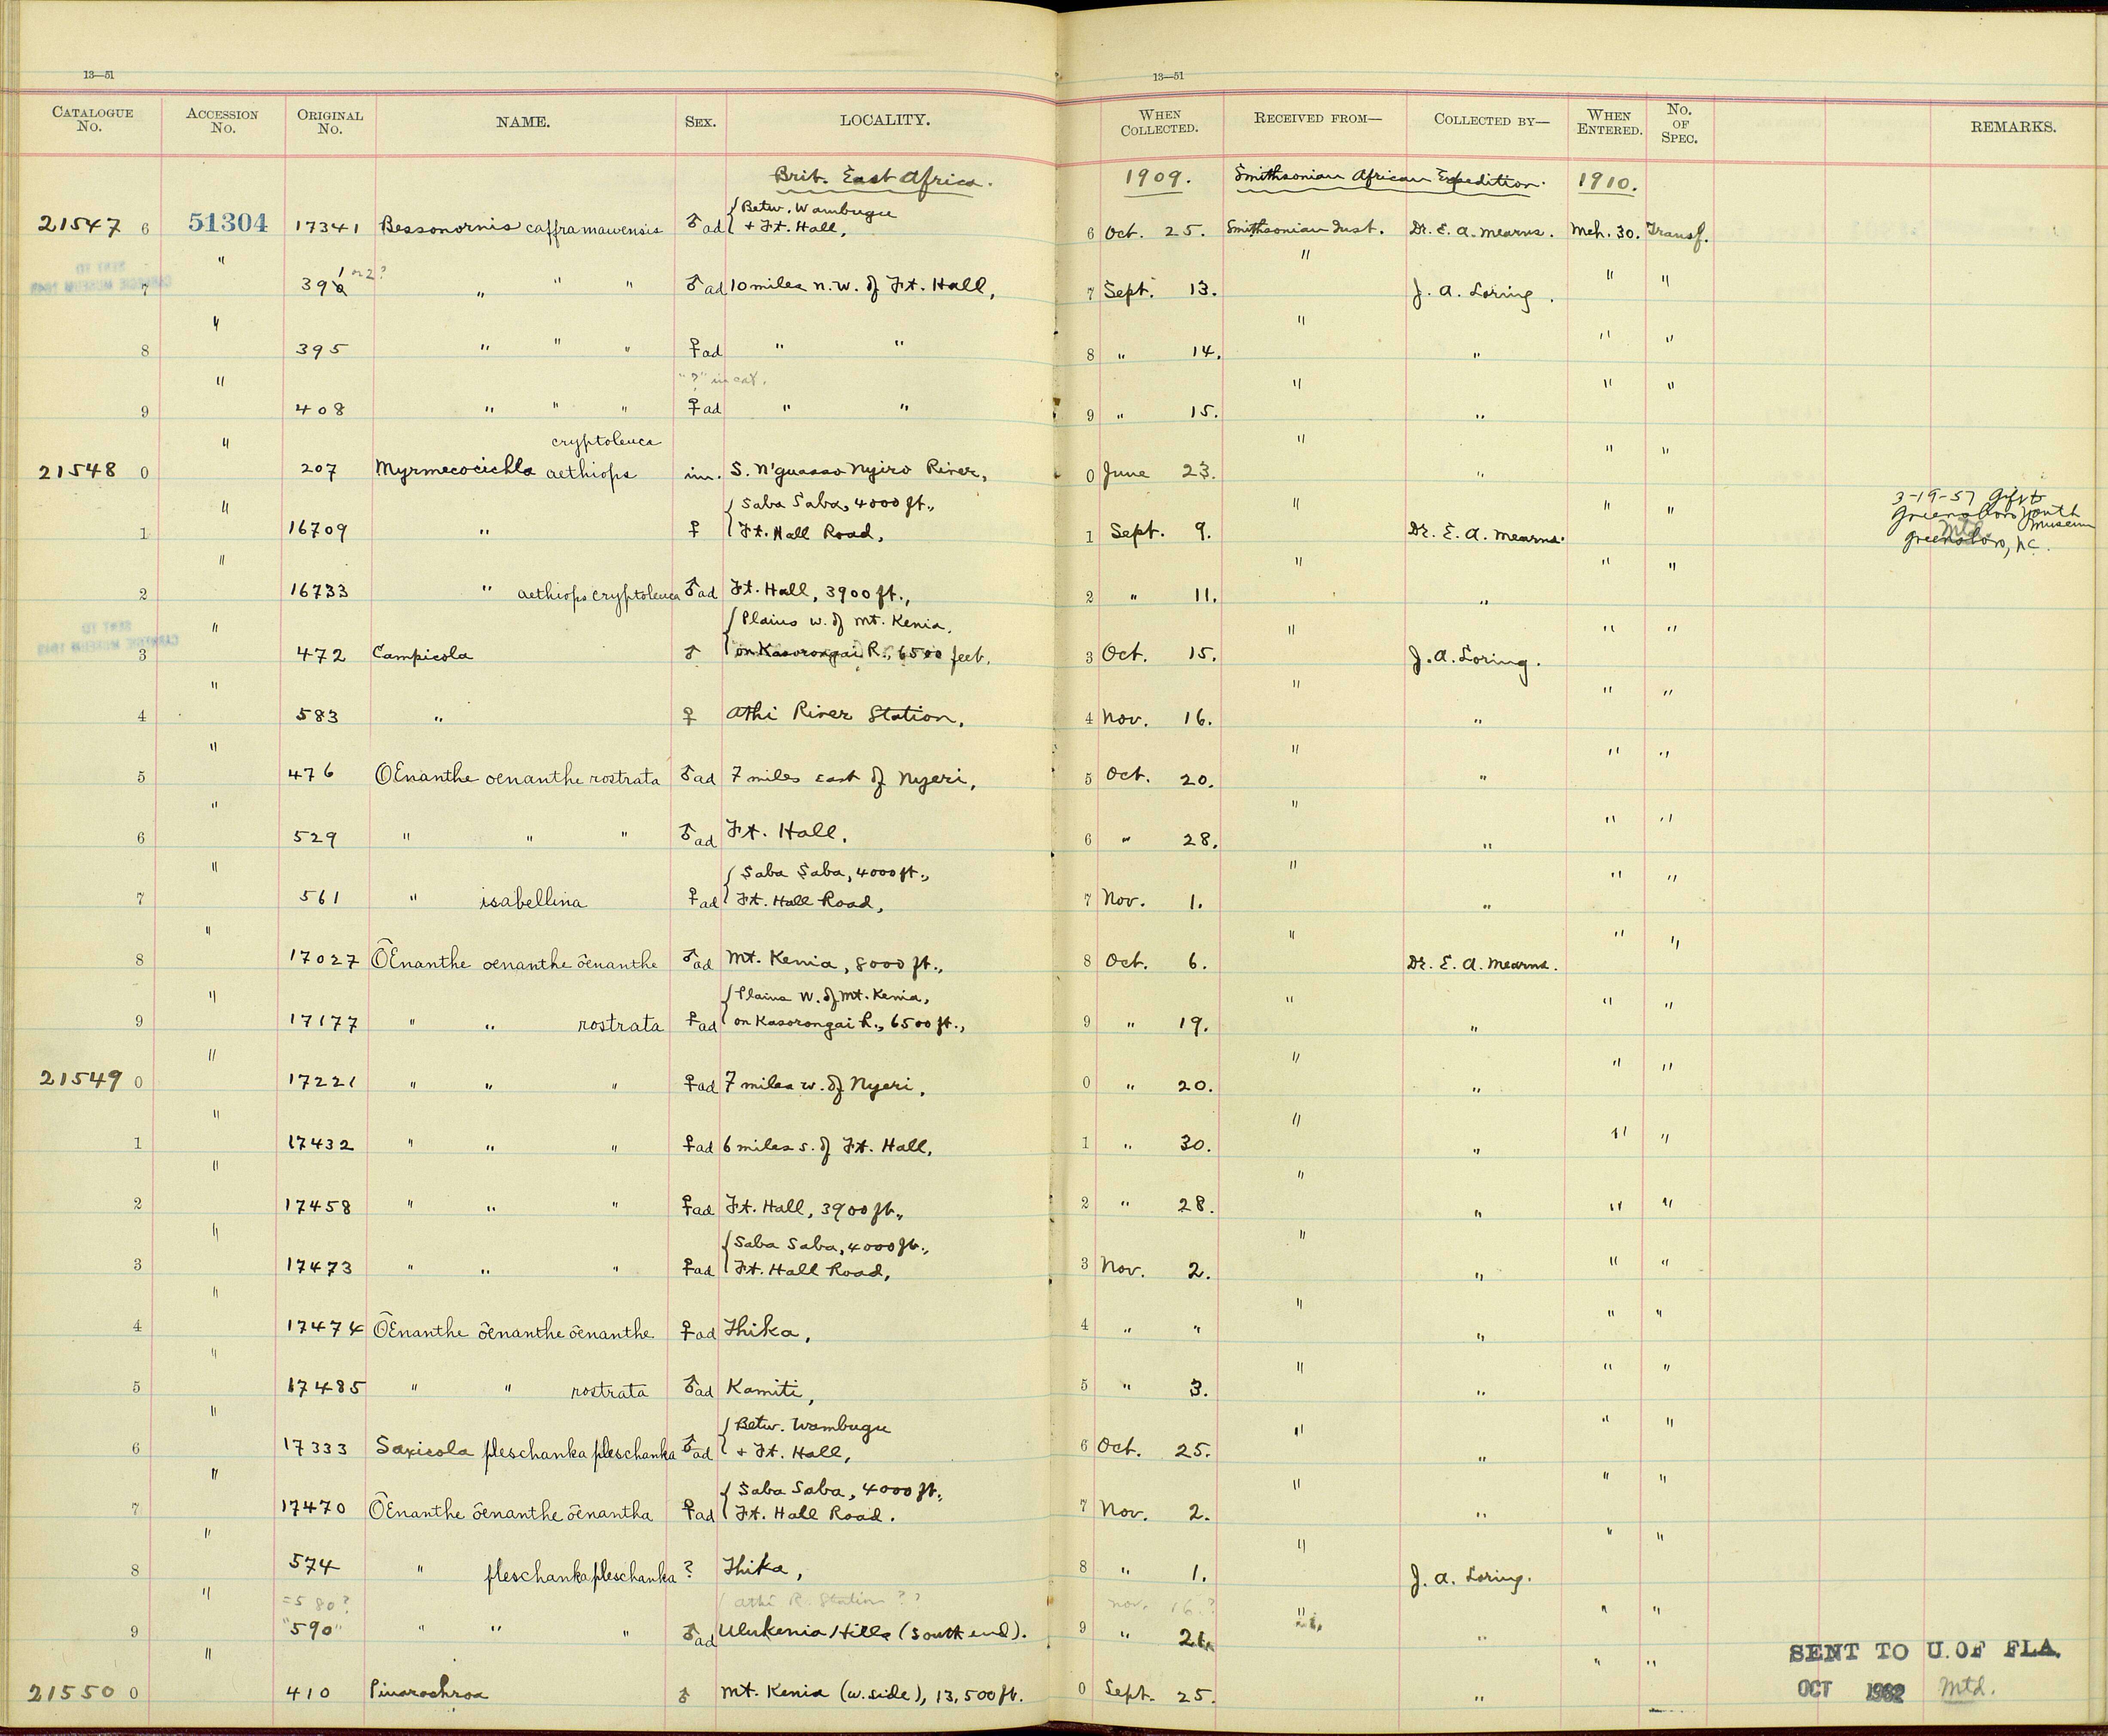 13—51 13—51
CATALOGUE No. ACCESSION No. ORIGINAL No. NAME. SEX. LOCALITY. WHEN COLLECTED. RECEIVED FROM— COLLECTED BY— WHEN ENTERED. No. OF SPEC. REMARKS.
Brit. East Africa. 1909. Smithsonian African Expedition. 1910.
21547 6 51304 17341 Bessonornis caffra mawensis ♂ ad { Betw. Wambugu + Ft. Hall, 6 Oct. 25. Smithsonian Inst. Dr. E. A. Mearns. Mch. 30. Transf.
SENT TO CARNEGIE MUSEUM
7 " 39 1 or 2? " " " ♂ ad 10 miles n.w. of Ft. Hall, 7 Sept. 13. " J. A. Loring. " "
8 " 395 " " " ♀ ad " " 8 " 14. " " " "
"?" in cat.
9 " 408 " " " ♀ ad " " 9 " 15. " " " "
cryptoleuca
21548 0 " 207 Myrmecocichla aethiops im. S. N'guasso Nyiro River, 0 June 23. " " " "
1 " 16709 " ♀ { Saba Saba, 4000 ft., Ft. Hall Road, 1 Sept. 9. " Dr. E. A. Mearns. " " 3-19-57 Gift to Greensboro Youth Museum Mtd. Greensboro, N.C.
2 " 16733 " aethiops cryptoleuca ♂ ad Ft. Hall, 3900 ft., 2 " 11. " " " "
SENT TO CARNEGIE MUSEUM
3 " 472 Campicola ♂ { Plains w. of Mt. Kenia, on Kasorongai R., 6500 feet. 3 Oct. 15. " J. A. Loring. " "
4 " 583 " ♀ Athi River Station, 4 Nov. 16. " " " "
5 " 476 OEnanthe oenanthe rostrata ♂ ad 7 miles east of Nyeri, 5 Oct. 20. " " " "
6 " 529 " " " ♂ ad Ft. Hall. 6 " 28. " " " "
7 " 561 " isabellina ♀ ad { Saba Saba, 4000 ft., Ft. Hall Road, 7 Nov. 1. " " " "
8 " 17027 OEnanthe oenanthe oenanthe ♂ ad Mt. Kenia, 8000 ft., 8 Oct. 6. " Dr. E. A. Mearns. " "
9 " 17177 " " rostrata ♀ ad { Plains W. of Mt. Kenia, on Kasorongai R., 6500 ft., 9 " 19. " " " "
21549 0 " 17221 " " " ♀ ad 7 miles w. of Nyeri, 0 " 20. " " " "
1 " 17432 " " " ♀ ad 6 miles s. of Ft. Hall, 1 " 30. " " " "
2 " 17458 " " " ♀ ad Ft. Hall, 3900 ft., 2 " 28. " " " "
3 " 17473 " " " ♀ ad { Saba Saba, 4000 ft., Ft. Hall Road, 3 Nov. 2. " " " "
4 " 17474 OEnanthe oenanthe oenanthe ♀ ad Thika, 4 " " " " " "
5 " 17485 " " rostrata ♂ ad Kamiti, 5 " 3. " " " "
6 " 17333 Saxicola pleschanka pleschanka ♂ ad { Betw. Wambugu + Ft. Hall, 6 Oct. 25. " " " "
7 " 17470 OEnanthe oenanthe oenantha ♀ ad { Saba Saba, 4000 ft., Ft. Hall Road. 7 Nov. 2. " " " "
8 " 574 " pleschanka pleschanka ? Thika, 8 " 1. " J. A. Loring. " "
=580? (Athi R. Station?? Nov. 16.?
9 " "590" " " " ♂ ad Ulukenia Hills (south end). 9 " 21. " " " "
21550 0 " 410 Pinarochroa ♂ Mt. Kenia (w. side), 13,500 ft. 0 Sept. 25. " " " SENT TO U. OF FLA. OCT 1962 Mtd.